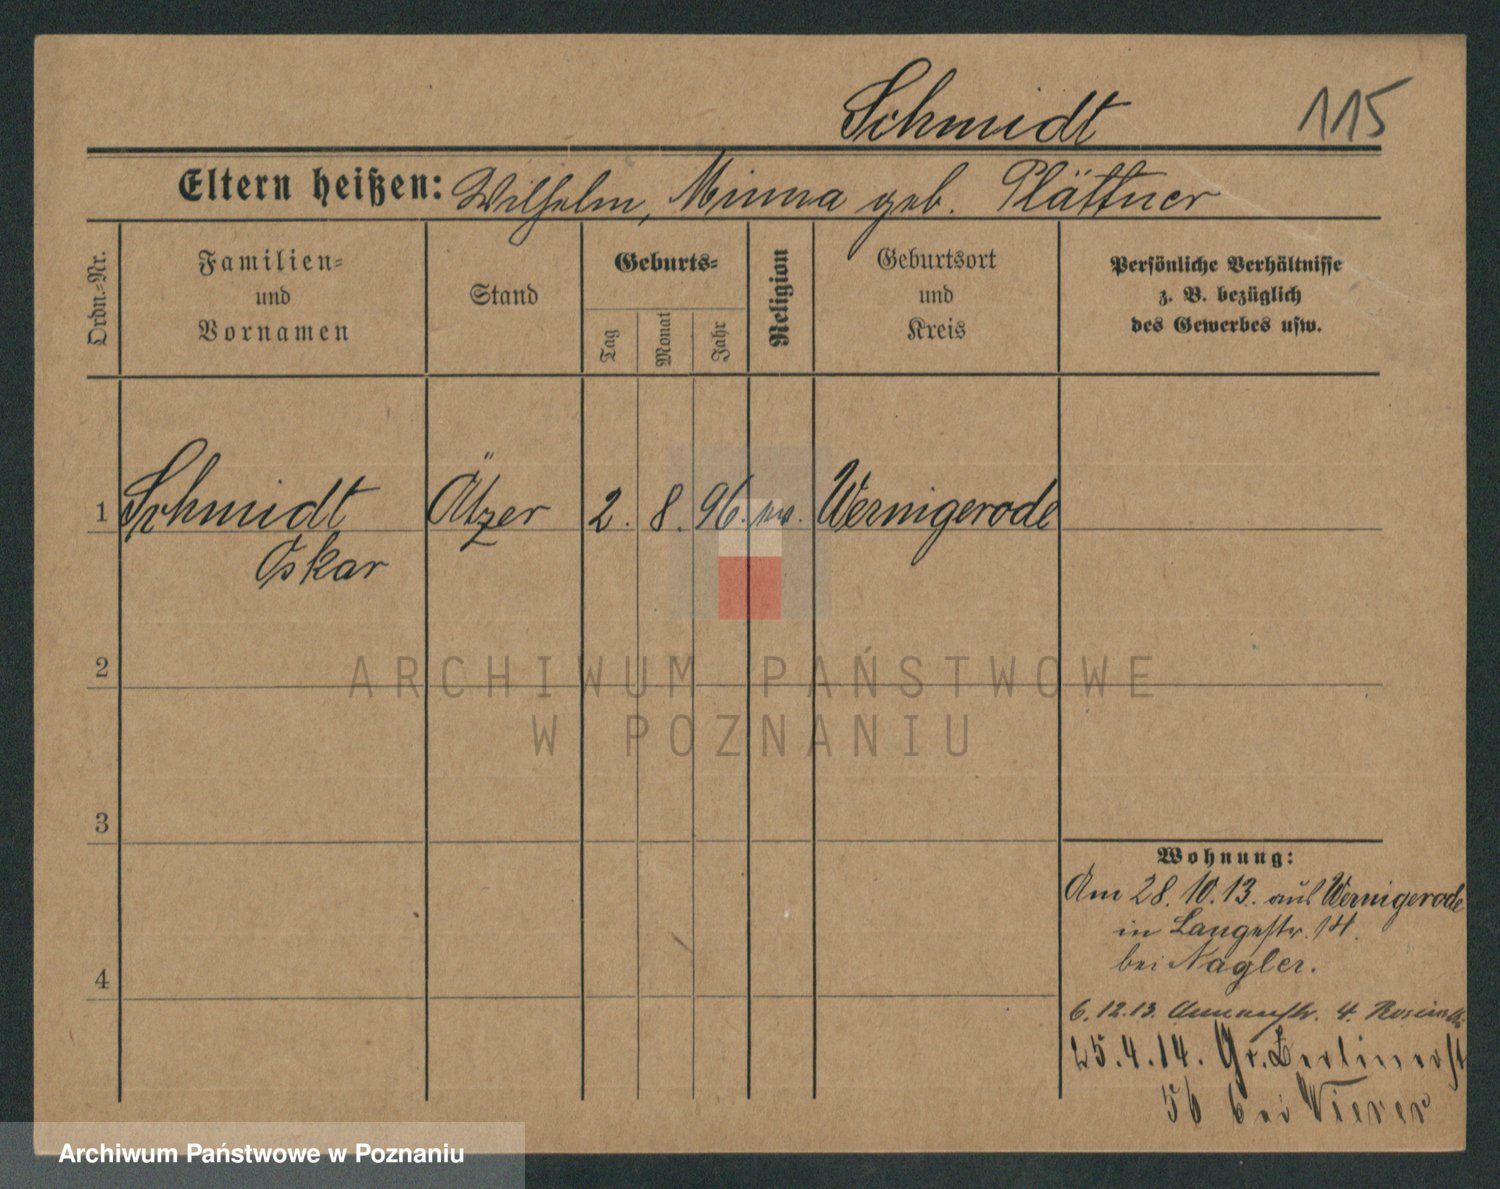 Schmidt 115
Eltern heißen: Wilhelm, Minna geb. Plättner
Ordn.-Nr.
Familien-
und
Vornamen
Stand
Geburts-
Tag
Monat
Jahr
Religion
Geburtsort
und
Kreis
Persönliche Verhältnisse
z. B. bezüglich
des Gewerbes usw.
1 Schmidt Ätzer 2. 8. 96. Wernigerode
Oskar
2
ARCHIWUM PAŃSTWOWE
W POZNANIU
3
4
Wohnung:
Am 28.10.13. aus Wernigerode
in Langestr. 14.
bei Nagler.
6.12.13. 4.
25.4.14. Gr. Berlinerst
56 bei Vierer
Archiwum Państwowe w Poznaniu